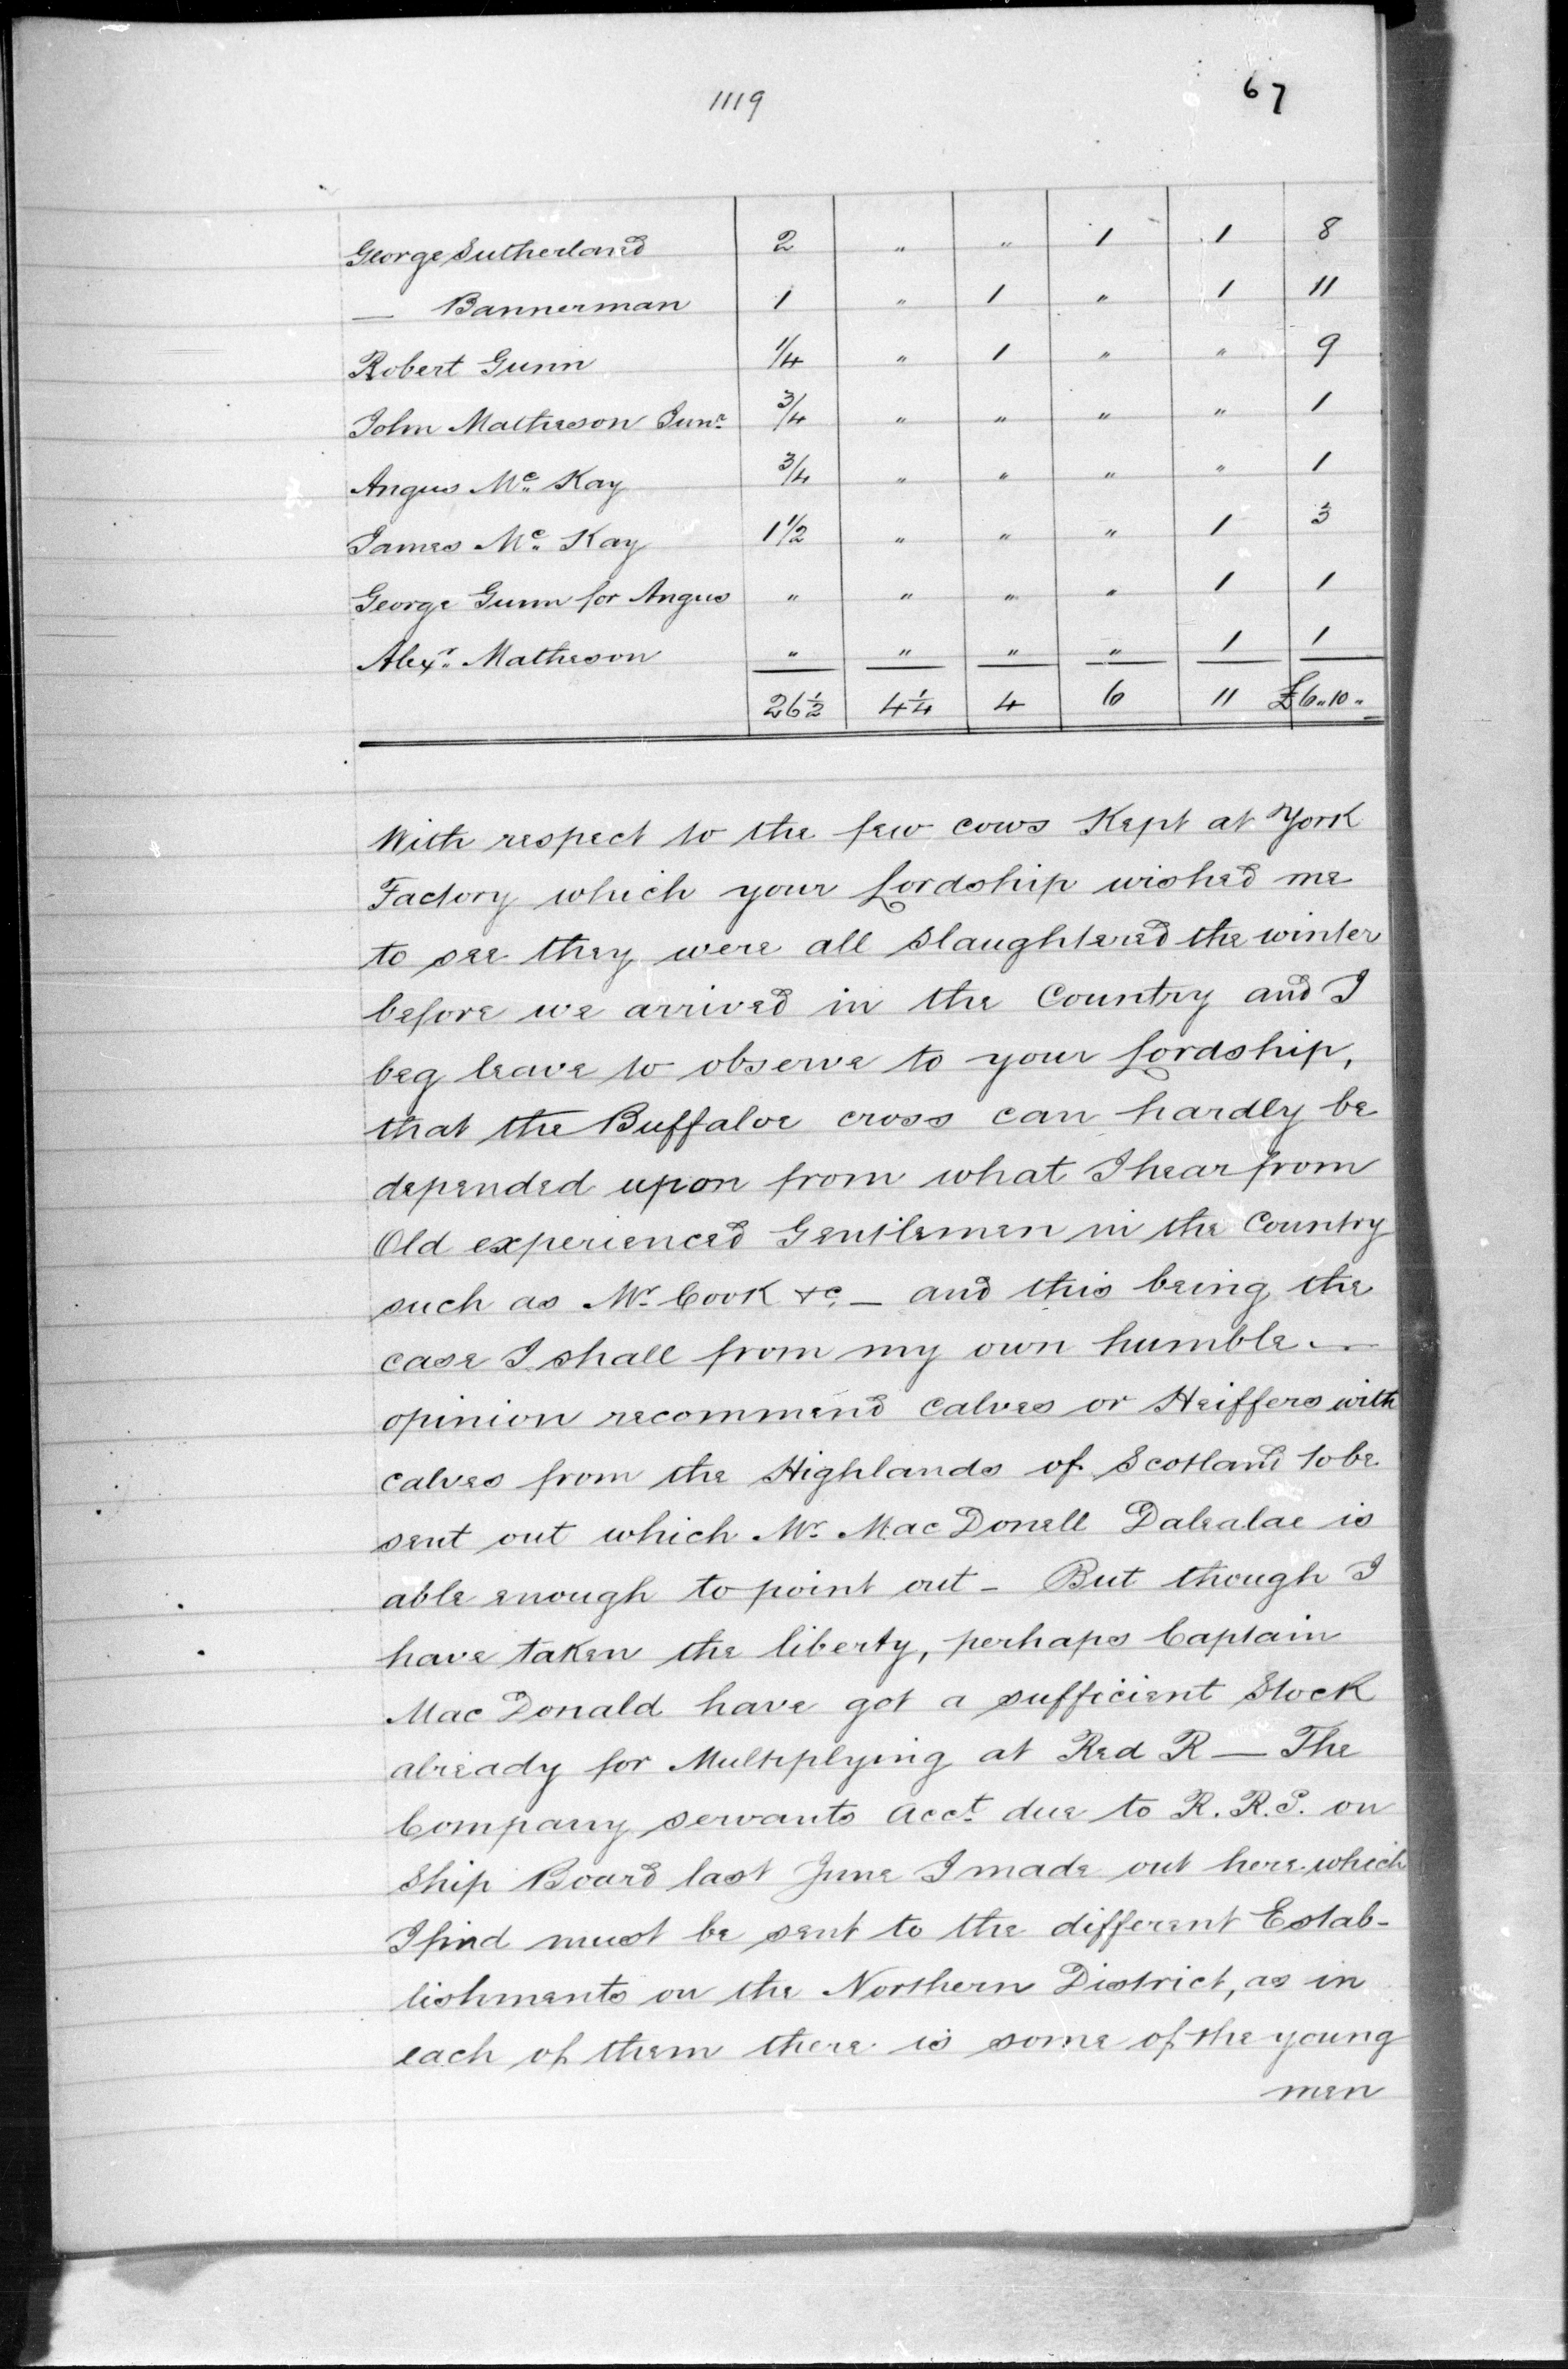 1119 67
George Sutherland 2 " " 1 1 8
— Bannerman 1 " 1 " 1 11
Robert Gunn 1/4 " 1 " " 9
John Matheson Junr 3/4 " " " " 1
Angus Mc Kay 3/4 " " " " 1
James Mc Kay 1 1/2 " " " 1 3
George Gunn for Angus " " " " 1 1
Alexr Matheson " " " " 1 1
26 1/2 4 1/4 4 6 11 £6"10"
With respect to the few cows Kept at York
Factory which your Lordship wished me
to see they were all slaughtered the winter
before we arrived in the Country and I
beg leave to observe to your Lordship,
that the Buffaloe cross can hardly be
depended upon from what I hear from
Old experienced Gentlemen in the Country
such as Mr. Cook &c. — and this being the
case I shall from my own humble —
opinion recommend Calves or Heiffers with
calves from the Highlands of Scotland to be
sent out which Mr. Mac Donell Dalealae is
able enough to point out — But though I
have taken the liberty, perhaps Captain
Mac Donald have got a sufficient Stock
already for Multiplying at Red R — The
Company servants Acct. due to R. R. S. on
Ship Board last June I made out here which
I find must be sent to the different Estab-
lishments on the Northern District, as in
each of them there is some of the young
men